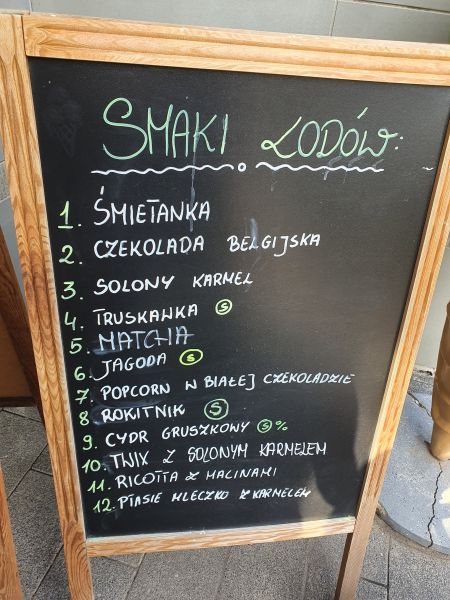 SMAKI LODÓW:
1. ŚMIETANKA
2. CZEKOLADA BELGIJSKA
3. SOLONY KARMEL
4. TRUSKAWKA Ⓢ
5. MATCHA
6. JAGODA Ⓢ
7. POPCORN W BIAŁEJ CZEKOLADZIE
8. ROKITNIK Ⓢ
9. CYDR GRUSZKOWY Ⓢ %
10. TWIX Z SOLONYM KARMELEM
11. RICOTTA Z MALINAMI
12. PTASIE MLECZKO Z KARMELEM